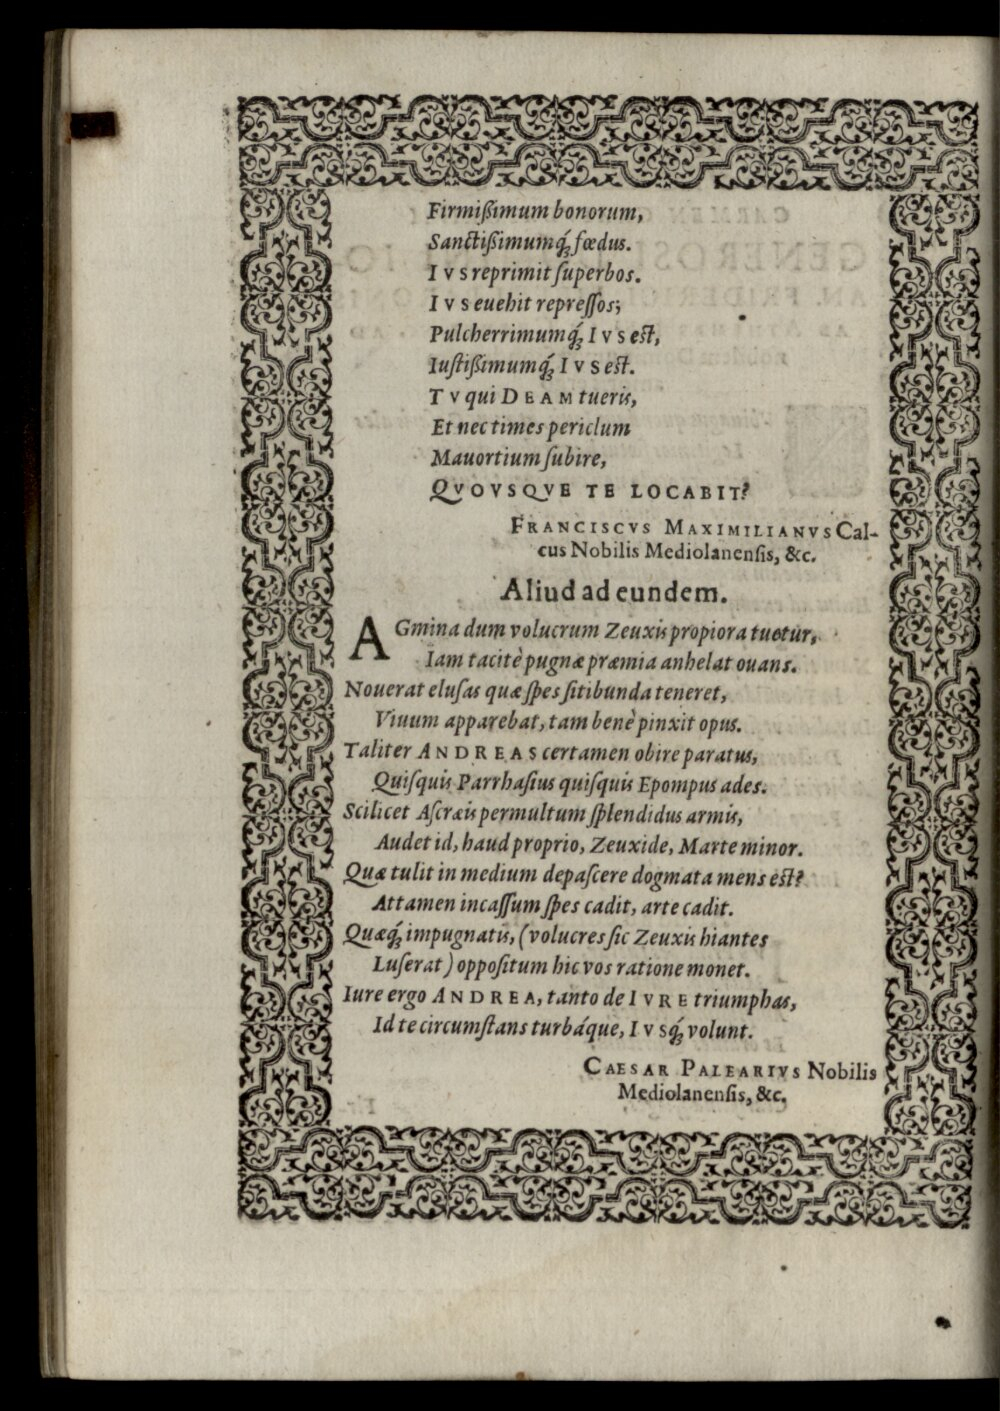 Firmißimum bonorum,
Sanctißimumq́ꝫ fœdus.
IVS reprimit ſuperbos.
IVS euehit repreſſos;
Pulcherrimumq́ꝫ IVS est,
Iuſtißimumq́ꝫ IVS est.
TV qui DEAM tueris,
Et nec times periclum
Mauortium ſubire,
QVOVSQVE TE LOCABIT?
FRANCISCVS MAXIMILIANVS Cal-
cus Nobilis Mediolanenſis, &c.
Aliud ad eundem.
AGmina dum volucrum Zeuxis propiora tuetur,
Iam tacitè pugnæ præmia anhelat ouans.
Nouerat eluſas quæ ſpes ſitibunda teneret,
Viuum apparebat, tam benè pinxit opus.
Taliter ANDREAS certamen obire paratus,
Quiſquis Parrhaſius quiſquis Epompus ades.
Scilicet Aſcræis permultum ſplendidus armis,
Audet id, haud proprio, Zeuxide, Marte minor.
Quæ tulit in medium depaſcere dogmata mens est?
Attamen incaſſum ſpes cadit, arte cadit.
Quæq́ꝫ impugnatis, (volucres ſic Zeuxis hiantes
Luſerat) oppoſitum hic vos ratione monet.
Iure ergo ANDREA, tanto de IVRE triumphas,
Id te circumſtans turbáque, IVSq́ꝫ volunt.
CAESAR PALEARIVS Nobilis
Mediolanenſis, &c.